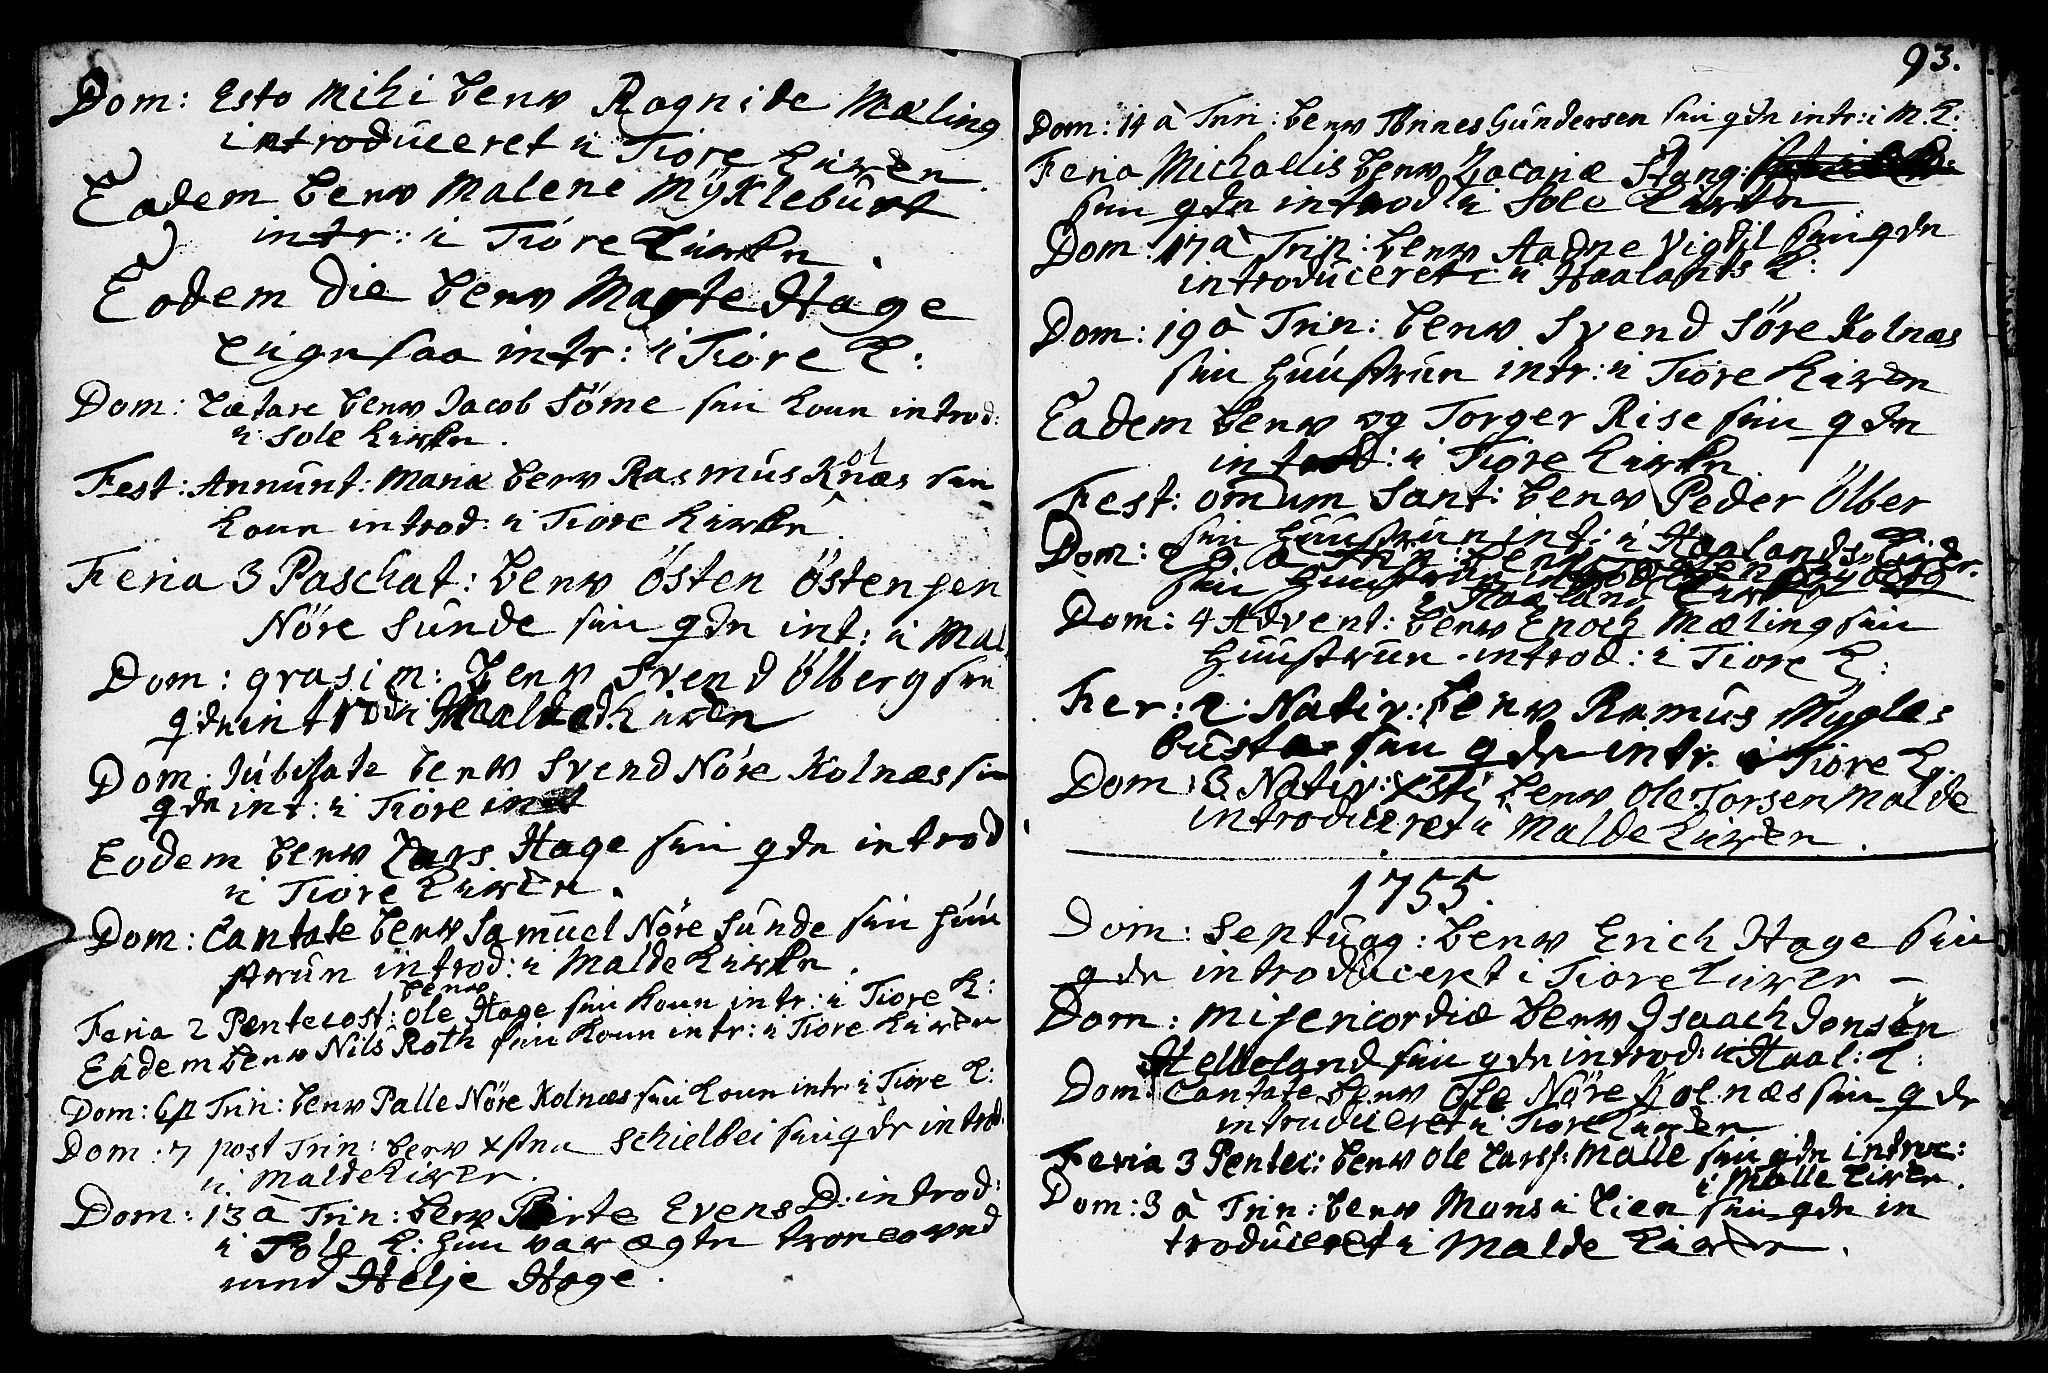 Dom: Esto Mihi blew Ragnide Mæling
introduceret i Tiore Kirken.
Eadem blew Malene Mÿklebust
intr: i Tiore Kirken.
Eodem Die blew Marte Hage
ligesaa intr: i Tiore K:
Dom: Lætare blew Jacob Söme sin Kone introd:
i Sole Kirken.
Fest: Annunt: Mariæ blew Rasmus Kolnæs sin
Kone introd: i Tiore Kirken.
Feria 3 Paschat: blew Östen Östensen
Nöre Sunde sin qde int: i Mal
Dom: qvasim: blew Svend Ölberg sin
qde introd: i Kirken
Dom: Jubilate blew Svend Nöre Kolnæs sin
qde int: i Tiore
Eodem blew Lars Hage sin qde introd
i Tiore Kirken.
Dom: Cantate blew Samuel Nöre Sunde sin Huu
strue introd: i Malde Kirken.
Feria 2 Pentecost: blew Ole Hage sin Kone intr: i Tiore K:
Eadem blew Nils Roth sin Kone intr: i Tiore Kirken
Dom: 6 p Trin: blew Palle Nöre Kolnæs sin Kone intr: i Tiore K:
Dom: 7 post Trin: blew xstna Schielbei sin qde introd:
i Malde Kirken.
Dom: 13 à Trin: blew Birte Evens D: introd:
i Sole K: hun var ægte troloved
med Helje Hage.
93.
Dom: 14 à Trin: blew Tönnes Gundersen sin qde intr: i M. K:
Feria Michaelis blew Zacariæ Stang:
sin qde introd: i Sole Kirken
Dom: 17 à Trin: blew Aadne Vigdil sin qde
introduceret i Haalands K:
Dom: 19 à Trin: blew Svend Söre Kolnæs
sin Huustrue intr: i Tiore Kirken
Eadem blew og Torger Rise sin qde
introd: i Tiore Kirken.
Fest: omium Sant: blew Peder Ölber
sin Huustrue int: i Haalands Kirke.
Dom: à Trin: blew
sin Huustrue
i Haaland Kirke
Dom: 4 Advent: blew Enoch Mæling sin
Huustrue introd: i Tiore K:
Fer: 2 Nativ: blew Rasmus Mÿgle
bust sin qde intr. i Tiore K.
Dom: 3 Nativ: xsti blew Ole Torsen Malde
introduceret i Malde Kirken.
1755.
Dom: Septuag: blew Erich Hage sin
qde introduceret i Tiore Kirken
Dom: Misericordiæ blew Isaach Jonsen
Helleland sin qde introd: i Haal: K:
Dom: Cantate blew Ole Nöre Kolnæs sin qde
introduceret i Tiore Kirken
Feria 3 Pentec: blew Ole Larss: Malle sin qde introc:
i Malle Kirken.
Dom: 3 à Trin: blew Mons i Lien sin qde in
troduceret i Malde Kirken.